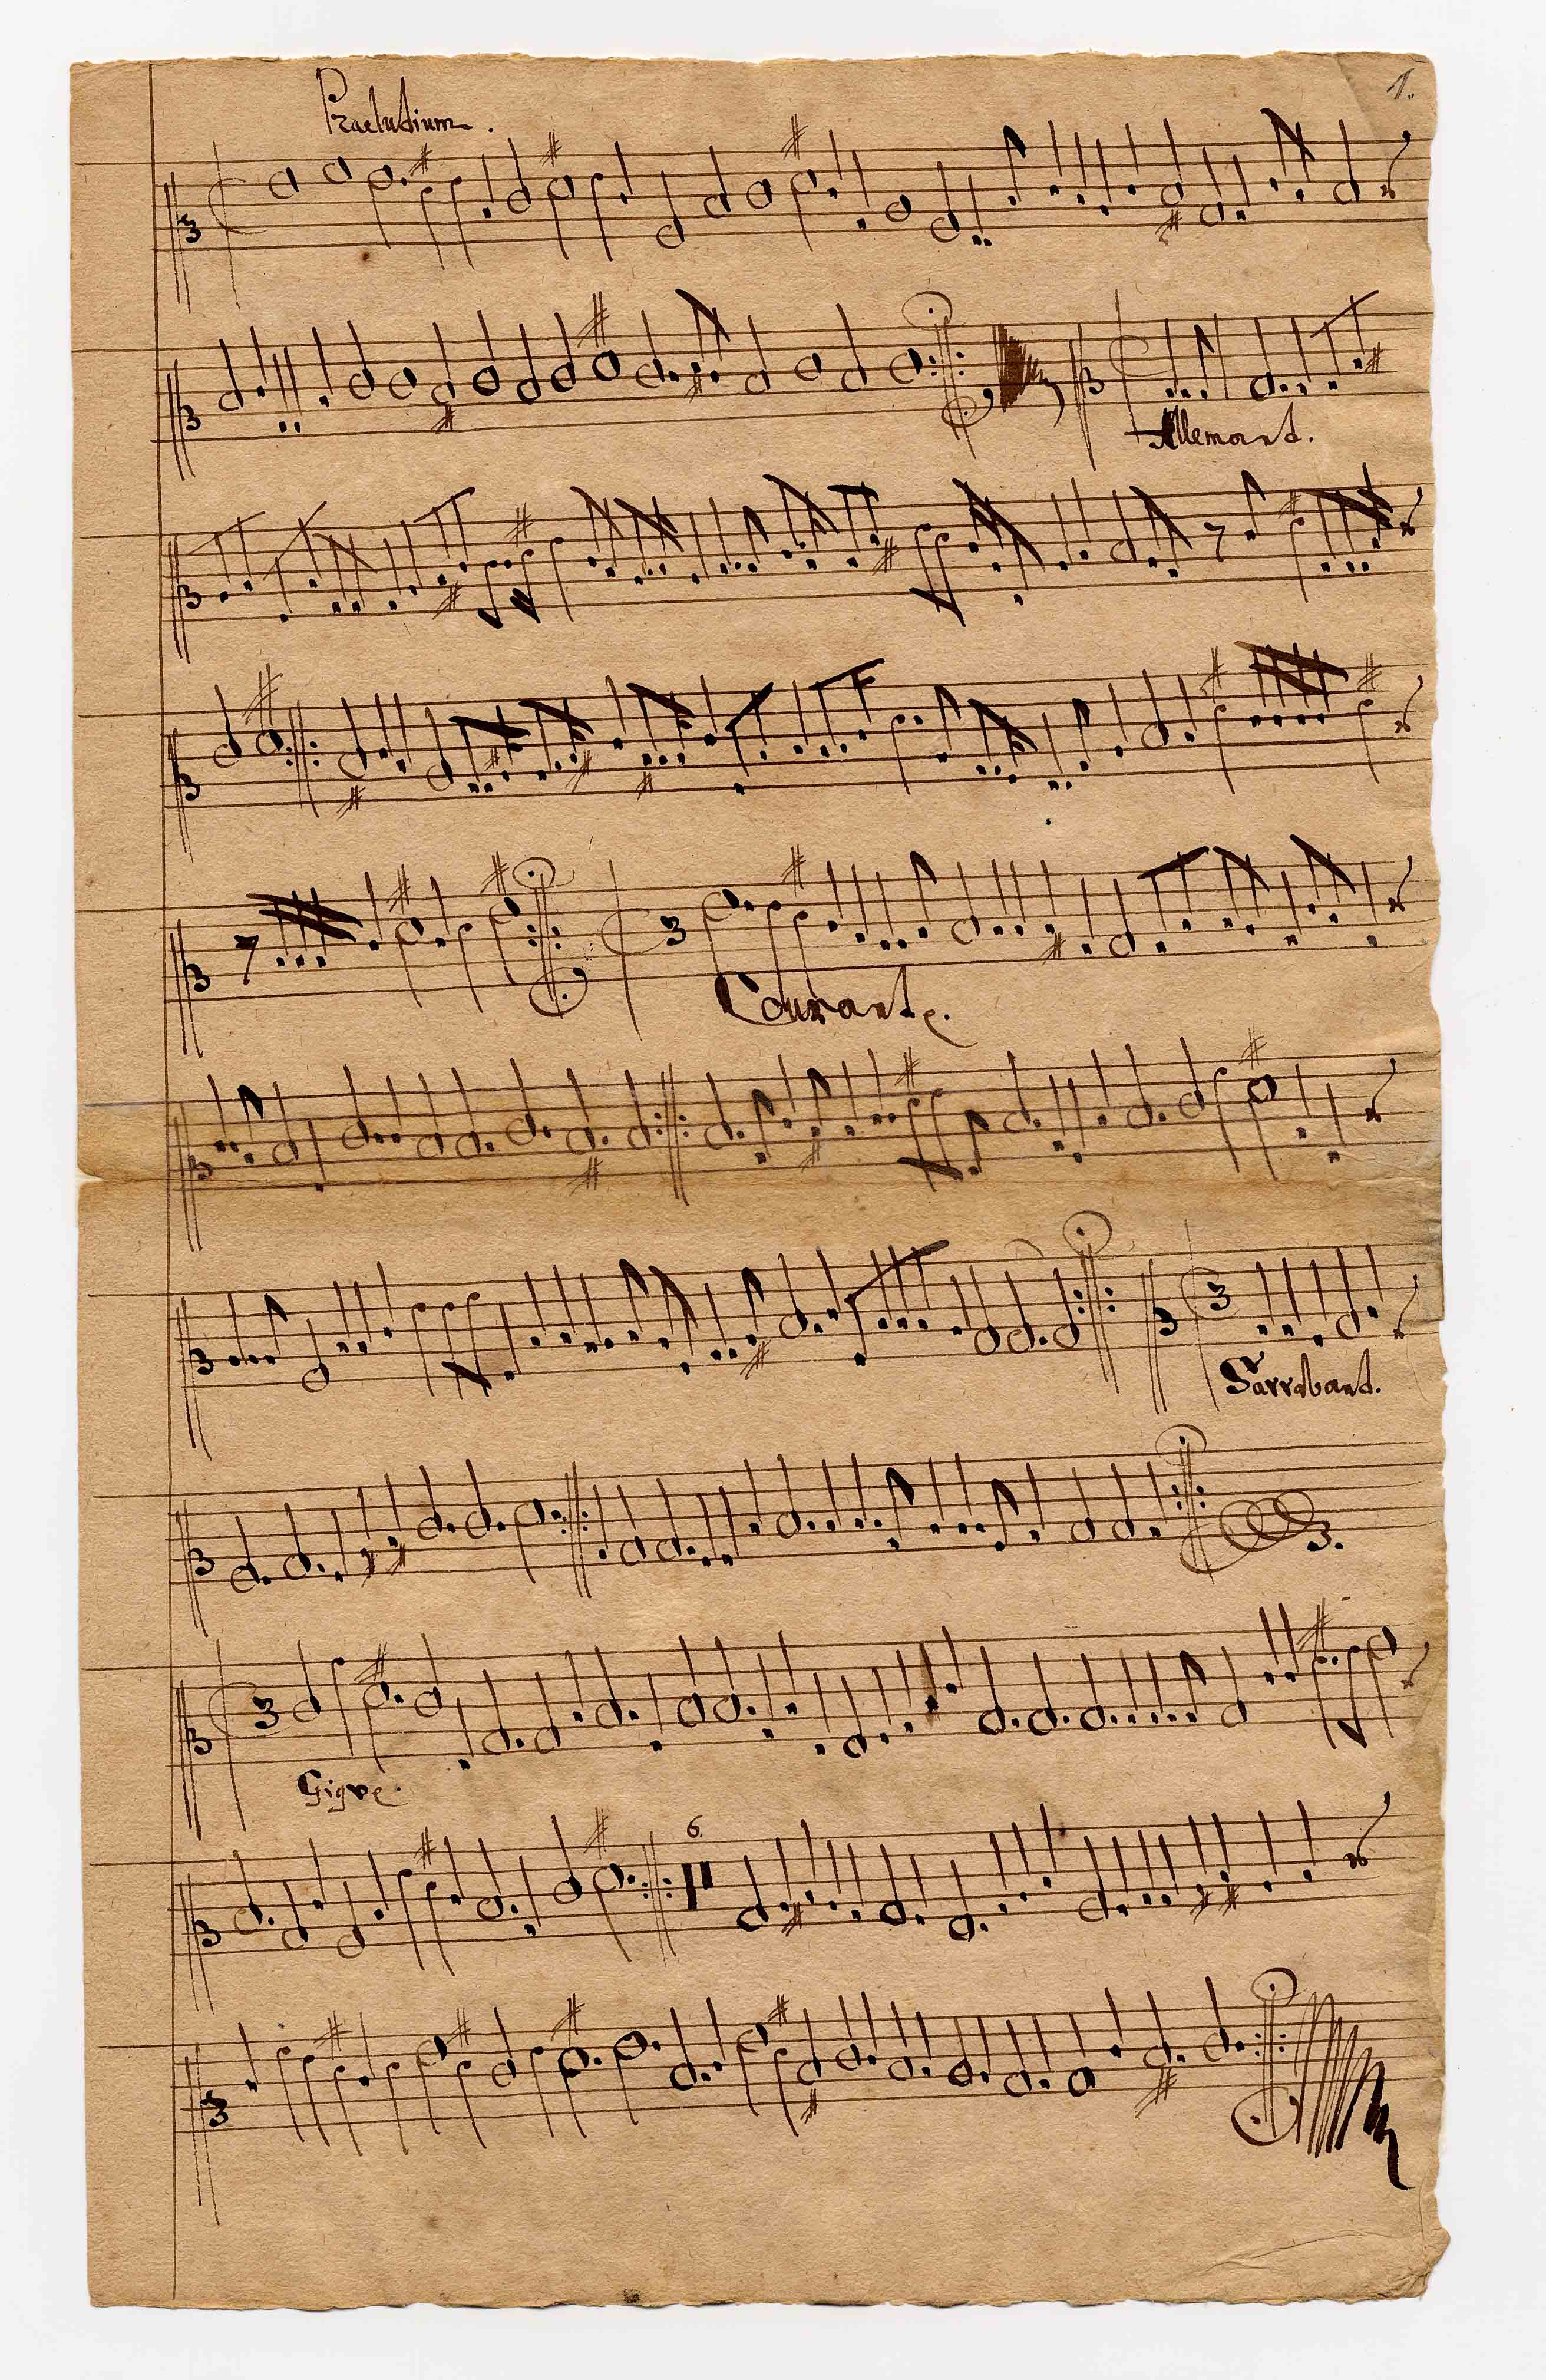 1.
Praeludium.
Allemand.
Courante.
3
Sarraband.
3
3.
3
Gigue.
6.